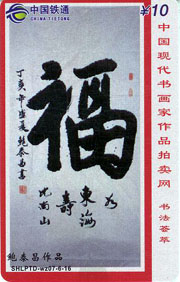 中国铁通
CHINA TIETONG
¥10
中国现代书画家作品拍卖网 书法荟萃
福
如東海
壽比南山
丁亥年盛夏 鲍泰昌書
鲍泰昌作品
SHLPTD-wz07-6-16